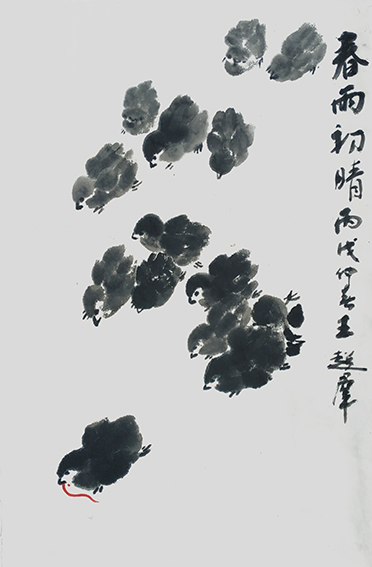 春雨初晴丙戌仲春王超羣